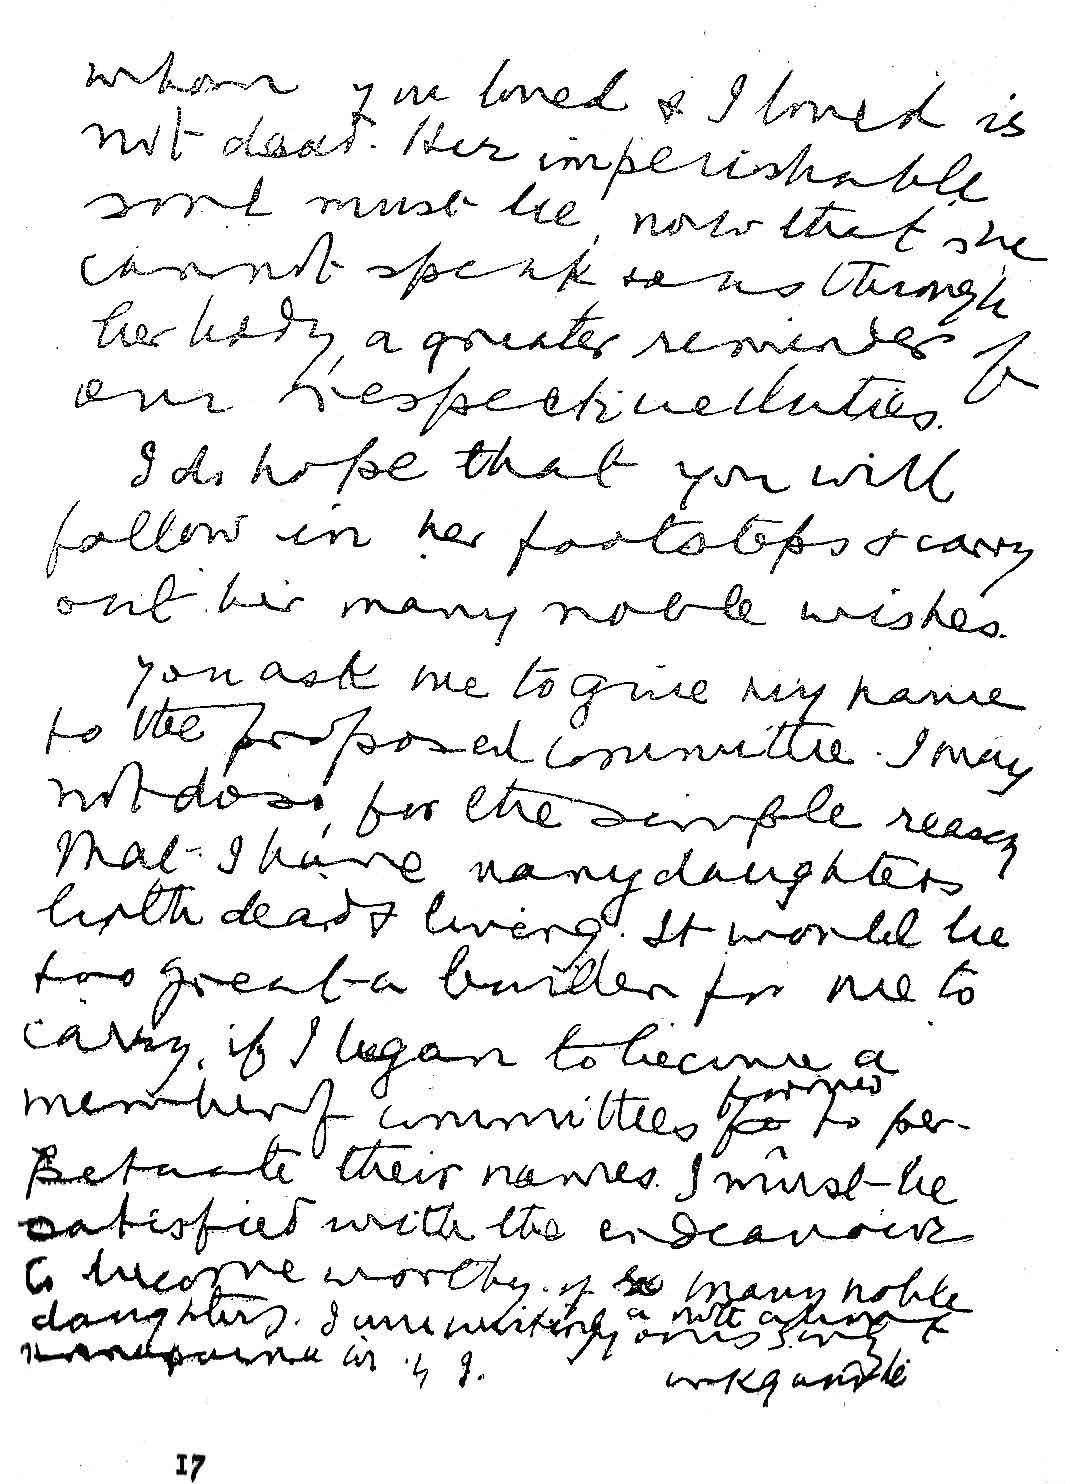 whom you loved & I loved is
not dead. Her imperishable
soul must be, now that she
cannot speak to us through
her body, a greater reminder of
our respective duties.
I do hope that you will
follow in her footsteps & carry
out her many noble wishes.
You ask me to give my name
to the proposed committee. I may
not do so, for the simple reason
that I have many daughters
both dead & living. It would be
too great a burden for me to
carry, if I began to become a
member of committees formed to per-
petuate their names. I must be
satisfied with the endeavour
to become worthy of so many noble
daughters. I am writing a note about
Annapurna in Y. I.
yours sincly
MKGandhi
17